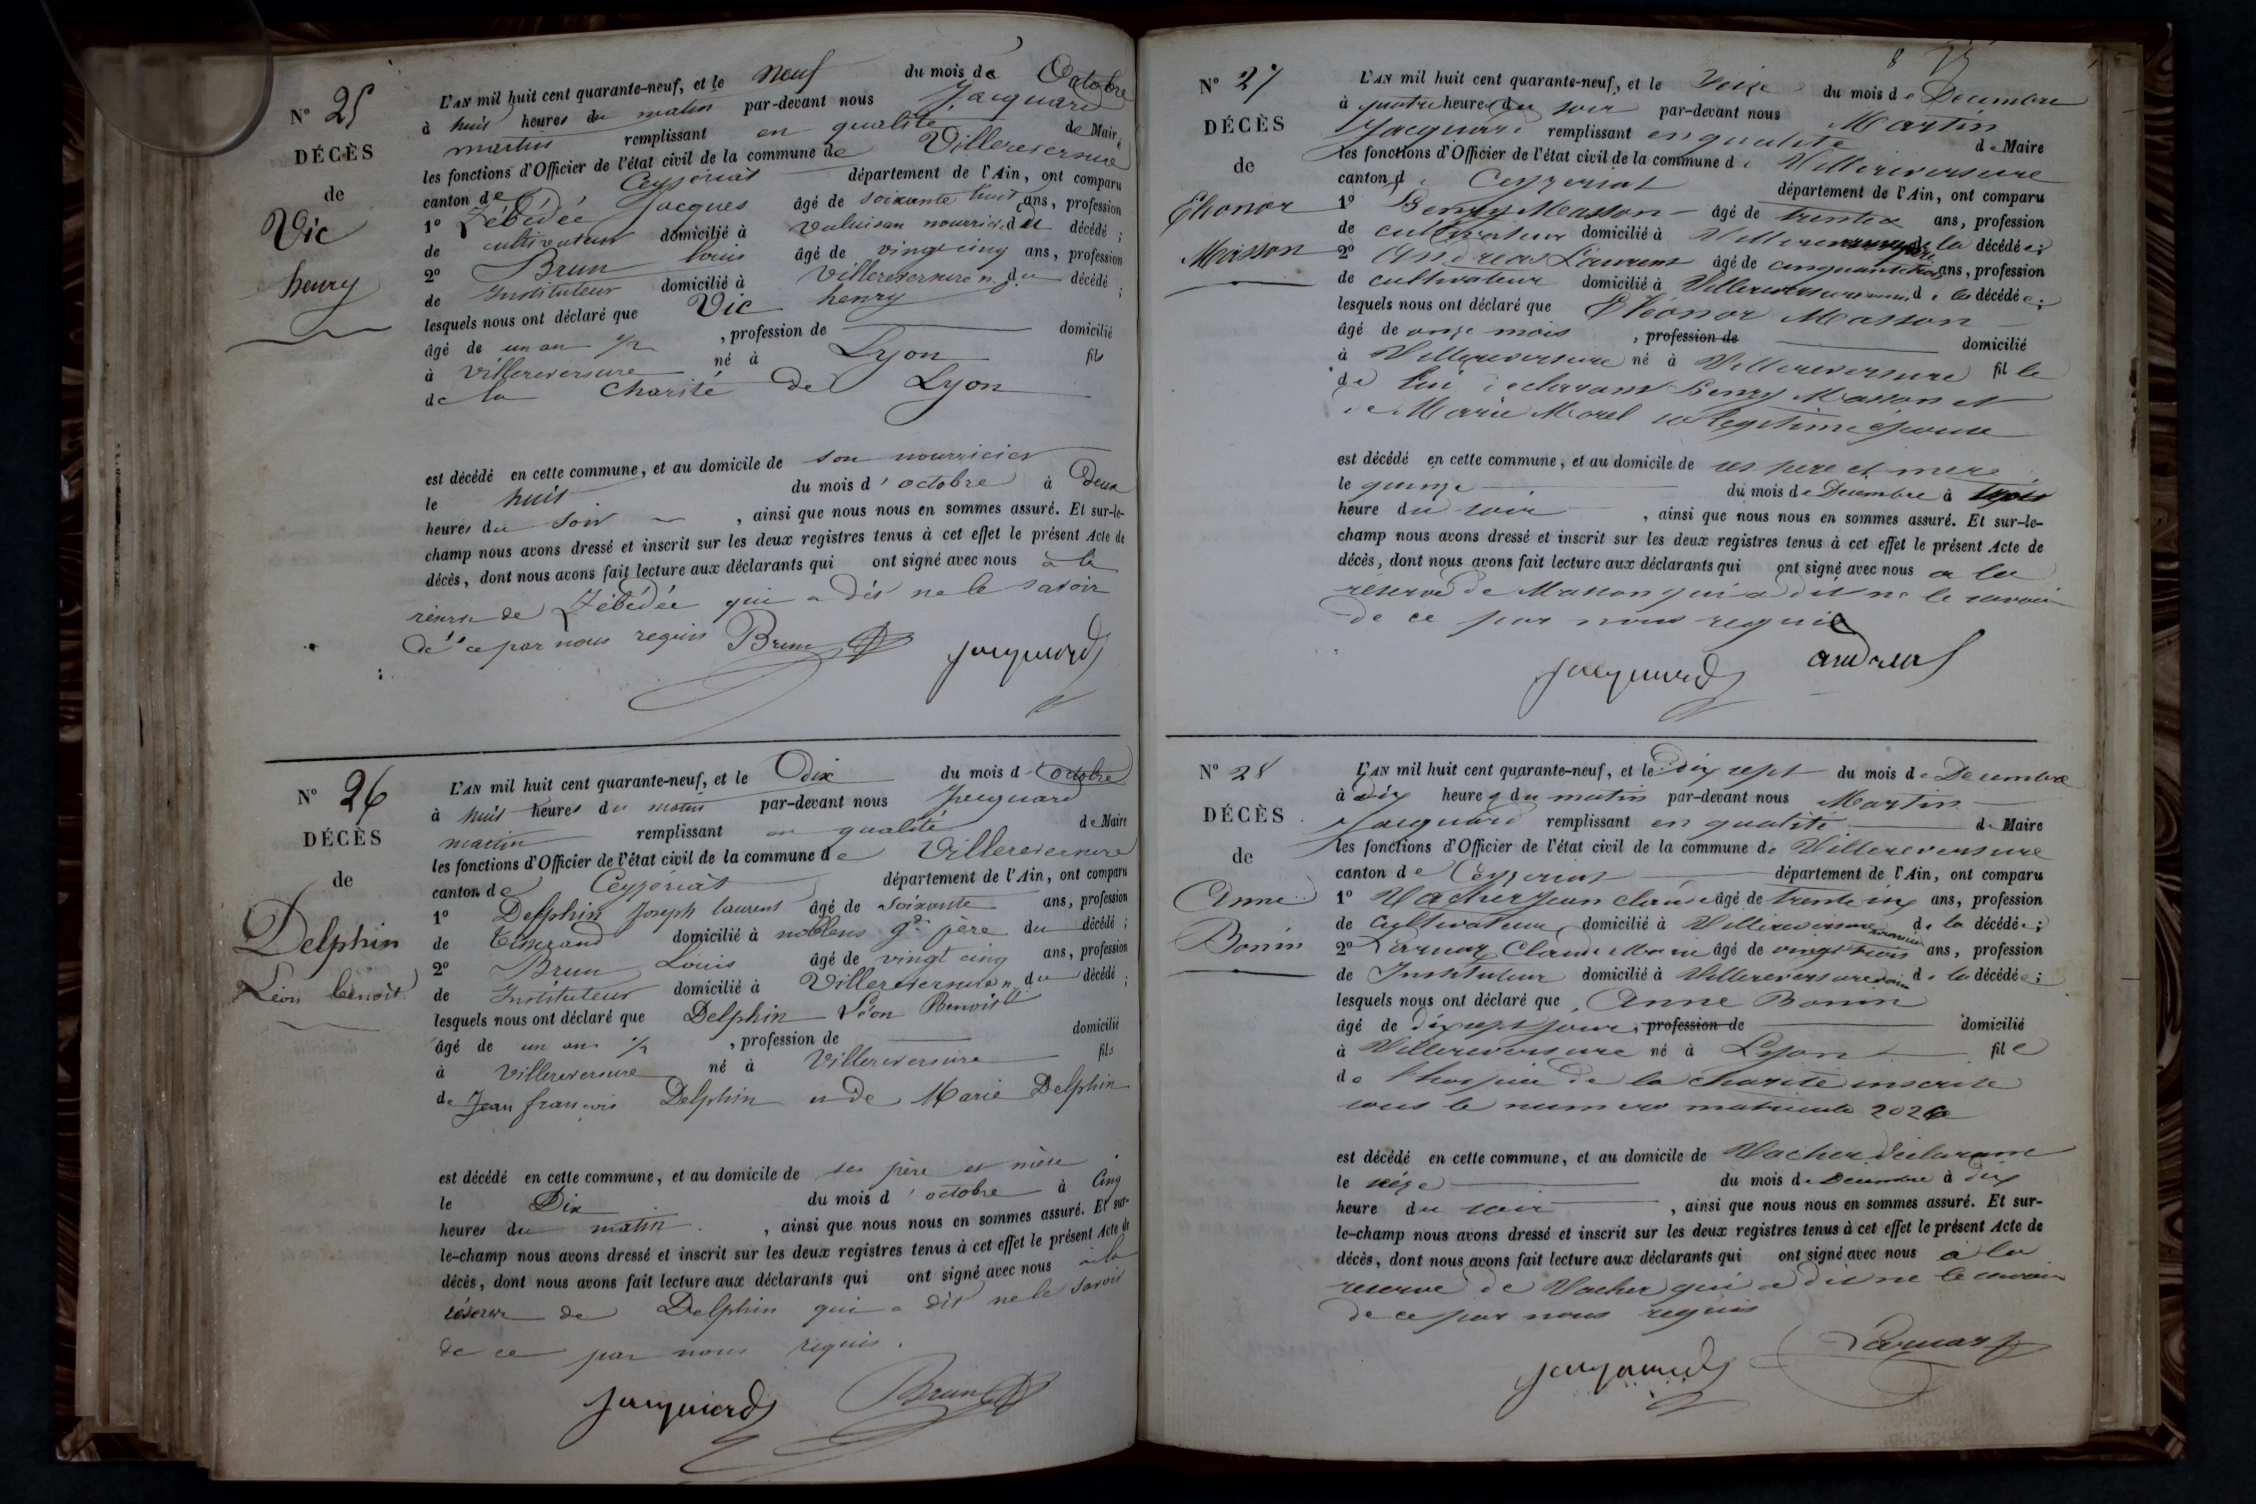 N° 25
DÉCÈS
de
Vic
henry
L'AN mil huit cent quarante-neuf, et le neuf du mois de Octobre
à huit heures du matin par-devant nous Jacquard
martin remplissant en qualité de Maire
les fonctions d'Officier de l'état civil de la commune de Villereversure
canton de Ceyzériat département de l'Ain, ont comparu
1° Zébédée Jacques âgé de soixante huit ans, profession
de cultivateur domicilié à nourricier du décédé ;
2° Brun louis âgé de vingt cinq ans, profession
de Instituteur domicilié à Villereversure n. du décédé ;
lesquels nous ont déclaré que Vic henry
âgé de un an 1/2 , profession de domicilié
à villereversure né à Lyon fils
de la Charité de Lyon
est décédé en cette commune, et au domicile de son nourricier
le huit du mois d'octobre à Deux
heures du soir , ainsi que nous nous en sommes assuré. Et sur-le-
champ nous avons dressé et inscrit sur les deux registres tenus à cet effet le présent Acte de
décès, dont nous avons fait lecture aux déclarants qui ont signé avec nous à la
réserve de Zébédée qui a dit ne le savoir
de ce par nous requis Brun Jacquard
N° 26
DÉCÈS
de
Delphin
Léon benoit
L'AN mil huit cent quarante-neuf, et le Dix du mois d'octobre
à huit heures du matin par-devant nous Jacquard
martin remplissant en qualité de Maire
les fonctions d'Officier de l'état civil de la commune de Villereversure
canton de Ceyzériat département de l'Ain, ont comparu
1° Delphin Joseph laurent âgé de soixante ans, profession
de Tisserand domicilié à noblens gd père du décédé ;
2° Brun Louis âgé de vingt cinq ans, profession
de Instituteur domicilié à Villereversure n. du décédé ;
lesquels nous ont déclaré que Delphin Léon Benoit
âgé de un an 1/2 , profession de domicilié
à villereversure né à Villereversure fils
de Jean françois Delphin et de Marie Delphin
est décédé en cette commune, et au domicile de ses père et mère
le Dix du mois d'octobre à Cinq
heures du matin , ainsi que nous nous en sommes assuré. Et sur-
le-champ nous avons dressé et inscrit sur les deux registres tenus à cet effet le présent Acte de
décès, dont nous avons fait lecture aux déclarants qui ont signé avec nous à la
réserve de Delphin qui a dit ne le savoir
de ce par nous requis.
Jacquard Brun
N° 27
DÉCÈS
de
Elionor
Masson
L'AN mil huit cent quarante-neuf, et le seize du mois de Décembre
à quatre heures du soir par-devant nous Martin
Jacquard remplissant en qualité de Maire
les fonctions d'Officier de l'état civil de la commune de Villereversure
canton de Ceyzeriat département de l'Ain, ont comparu
1° Benoy Masson âgé de ans, profession
de cultivateur domicilié à Villereversure père de la décédée ;
2° Andréas Laurent âgé de cinquante trois ans, profession
de cultivateur domicilié à Villereversure de la décédée ;
lesquels nous ont déclaré que Eléonor Masson
âgé de onze mois , profession de domicilié
à Villereversure né à Villereversure fille
de lui déclarant Benoy Masson et
de Marie Morel sa légitime épouse
est décédé en cette commune, et au domicile de ses père et mère
le quinze du mois de Décembre à
heure du soir , ainsi que nous nous en sommes assuré. Et sur-le-
champ nous avons dressé et inscrit sur les deux registres tenus à cet effet le présent Acte de
décès, dont nous avons fait lecture aux déclarants qui ont signé avec nous a la
réserve de Masson qui a dit ne le savoir
de ce par nous requis
Jacquard andreas
N° 28
DÉCÈS
de
Anne
Bonin
L'AN mil huit cent quarante-neuf, et le dix sept du mois de Decembre
à dix heures du matin par-devant nous Martin
Jacquard remplissant en qualité de Maire
les fonctions d'Officier de l'état civil de la commune de Villereversure
canton de Ceyzeriat département de l'Ain, ont comparu
1° Vacher Jean claude âgé de ans, profession
de Cultivateur domicilié à Villereversure de la décédée ;
2° Claude Marie âgé de vingt trois ans, profession
de Instituteur domicilié à Villereversure de la décédée ;
lesquels nous ont déclaré que Anne Bonin
âgé de dix sept jours, profession de domicilié
à Villereversure né à Lyon file
de l'hospice de la charité inscrite
sous le numero matricule
est décédé en cette commune, et au domicile de Vacher déclarant
le seize du mois de Décembre à dix
heure du soir , ainsi que nous nous en sommes assuré. Et sur-
le-champ nous avons dressé et inscrit sur les deux registres tenus à cet effet le présent Acte de
décès, dont nous avons fait lecture aux déclarants qui ont signé avec nous à la
reserve de Vacher qui a dit ne le savoir
de ce par nous requis
Jacquard